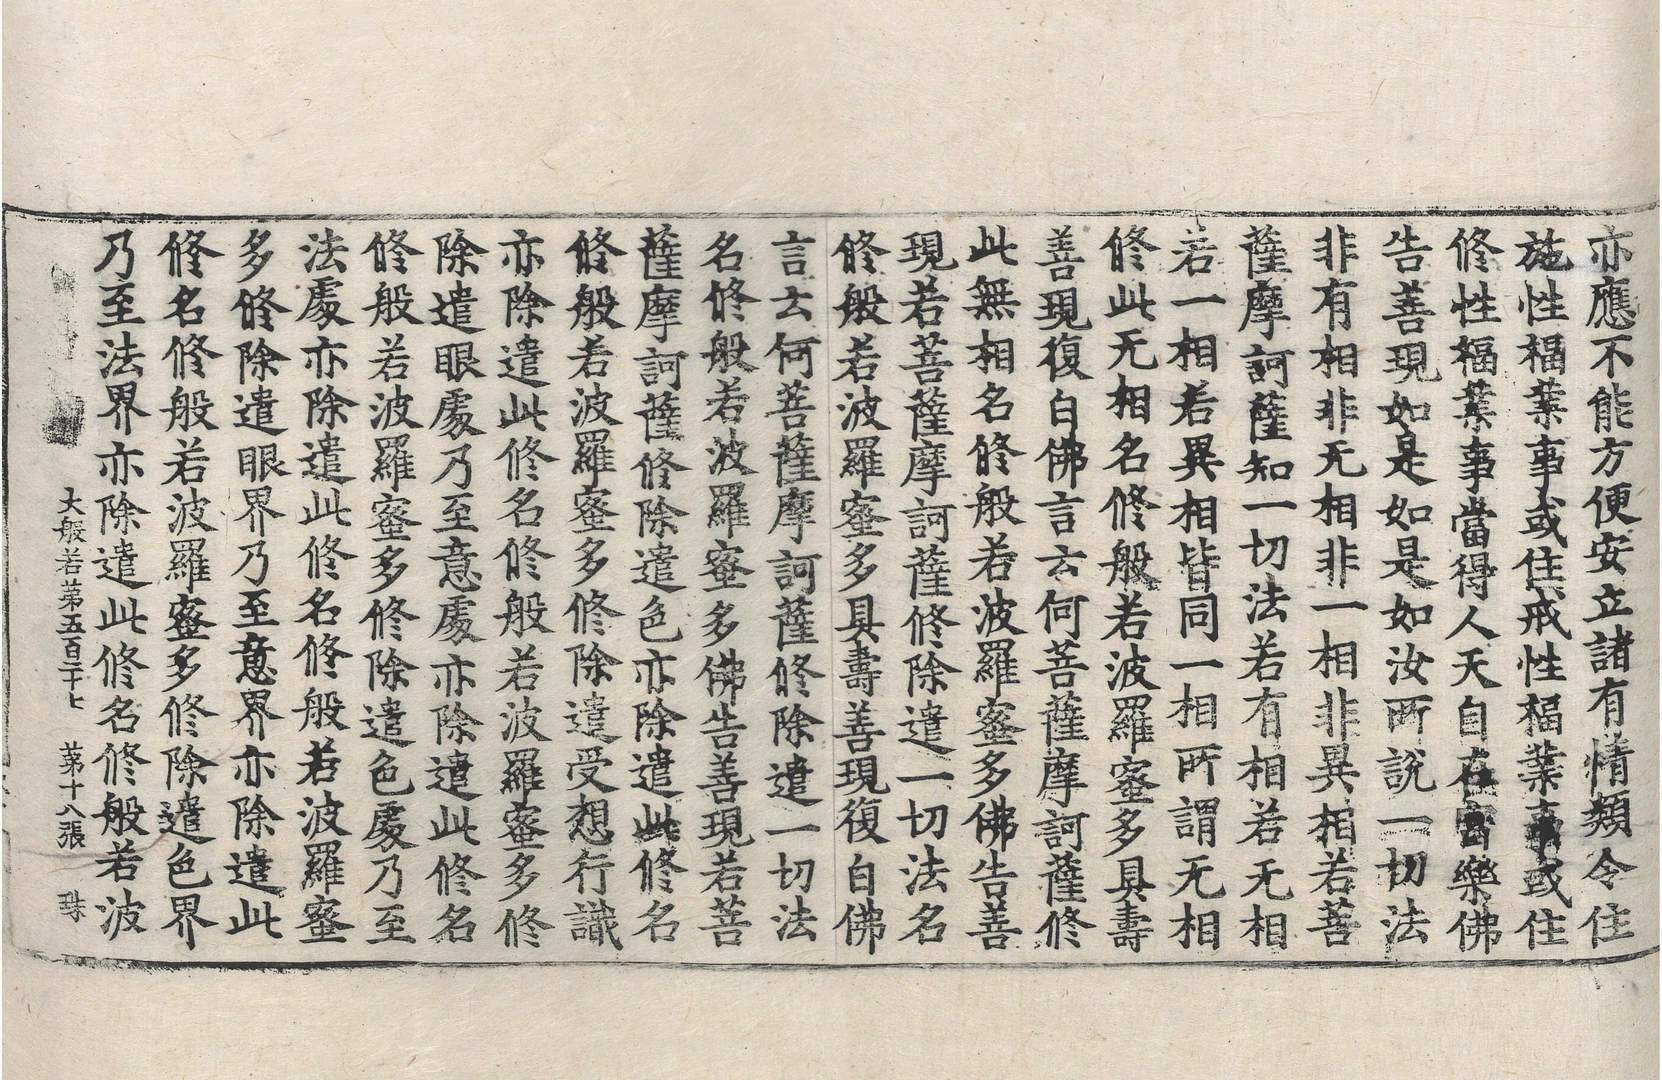 亦應不能方便安立諸有情類令住
施性福業事或住戒性福業事或住
修性福業事當得人天自在富樂佛
告善現如是如是如汝所說一切法
非有相非无相非一相非異相若菩
薩摩訶薩知一切法若有相若无相
若一相若異相皆同一相所謂无相
修此无相名修般若波羅蜜多具壽
善現復白佛言云何菩薩摩訶薩修
此無相名修般若波羅蜜多佛告善
現若菩薩摩訶薩修除遣一切法名
修般若波羅蜜多具壽善現復白佛
言云何菩薩摩訶薩修除遣一切法
名修般若波羅蜜多佛告善現若菩
薩摩訶薩修除遣色亦除遣此修名
修般若波羅蜜多修除遣受想行識
亦除遣此修名修般若波羅蜜多修
除遣眼處乃至意處亦除遣此修名
修般若波羅蜜多修除遣色處乃至
法處亦除遣此修名修般若波羅蜜
多修除遣眼界乃至意界亦除遣此
修名修般若波羅蜜多修除遣色界
乃至法界亦除遣此修名修般若波
大般若第五百二十七 第十八張 珠